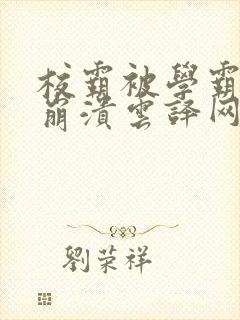 校霸被學霸
崩潰雲譯网
劉荣祥